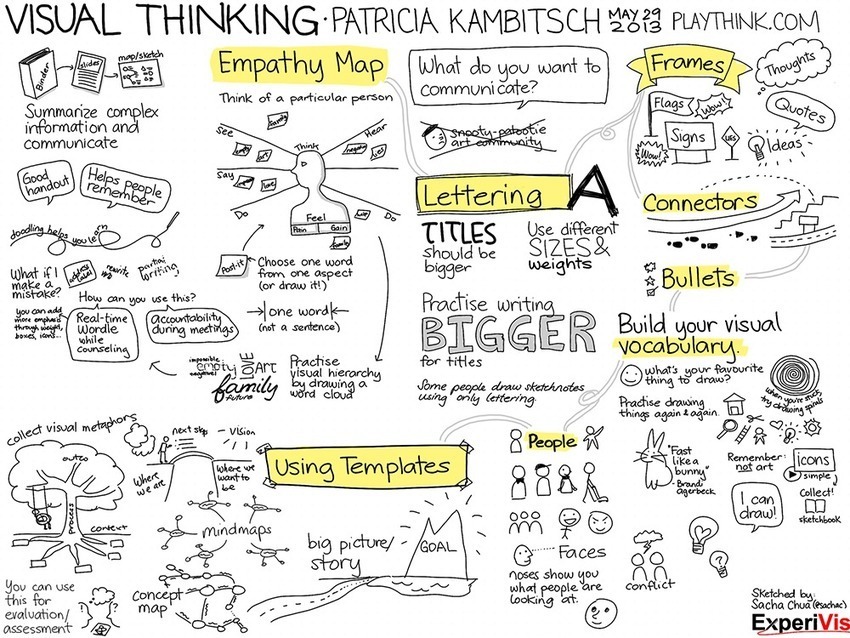 VISUAL THINKING · PATRICIA KAMBITSCH MAY 29 2013 PLAYTHINK.COM
Binder
slides
map/sketch
Summarize complex
information and
communicate
Good
handout
Helps people
remember
doodling helps you learn
What if I
make a
mistake?
rewrite
partial
writing
you can add
more emphasis
through weight,
boxes, icons...
How can you use this?
Real-time
Wordle
while
counseling
Accountability
during meetings
Empathy Map
Think of a particular person
See
Think
Hear
Say
Do
Do
Feel
Pain
Gain
family
Post-it
Choose one word
from one aspect
(or draw it!)
one word
(not a sentence)
impossible
empty
negeted
LOVE
Art
family
future
Practise
visual hierarchy
by drawing a
word cloud
What do you want to
communicate?
snooty-patootie
art community
Lettering A
TITLES
should be
bigger
Use different
SIZES &
weights
Practise writing
BIGGER
for titles
Some people draw sketchnotes
using only lettering.
Frames
Thoughts
Flags
Wow!
Quotes
Signs
Wow!
Ideas
Connectors
Bullets
Build your visual
vocabulary.
What's your favourite
thing to draw?
when you're stuck,
try drawing spirals
Practise drawing
things again & again.
"Fast
like a
bunny"
- Brandy
Agerbeck
Remember:
not art
icons
simple
Collect!
sketchbook
I can
draw!
collect visual metaphors
outco
process
context
You can use
this for
evaluation/
assessment
next step
vision
Where
we are
Where we
want to
be
mindmaps
concept
map
Using Templates
big picture/
story
GOAL
People
Faces
noses show you
what people are
looking at.
conflict
Sketched by:
Sacha Chua (@sachac)
ExperiVis